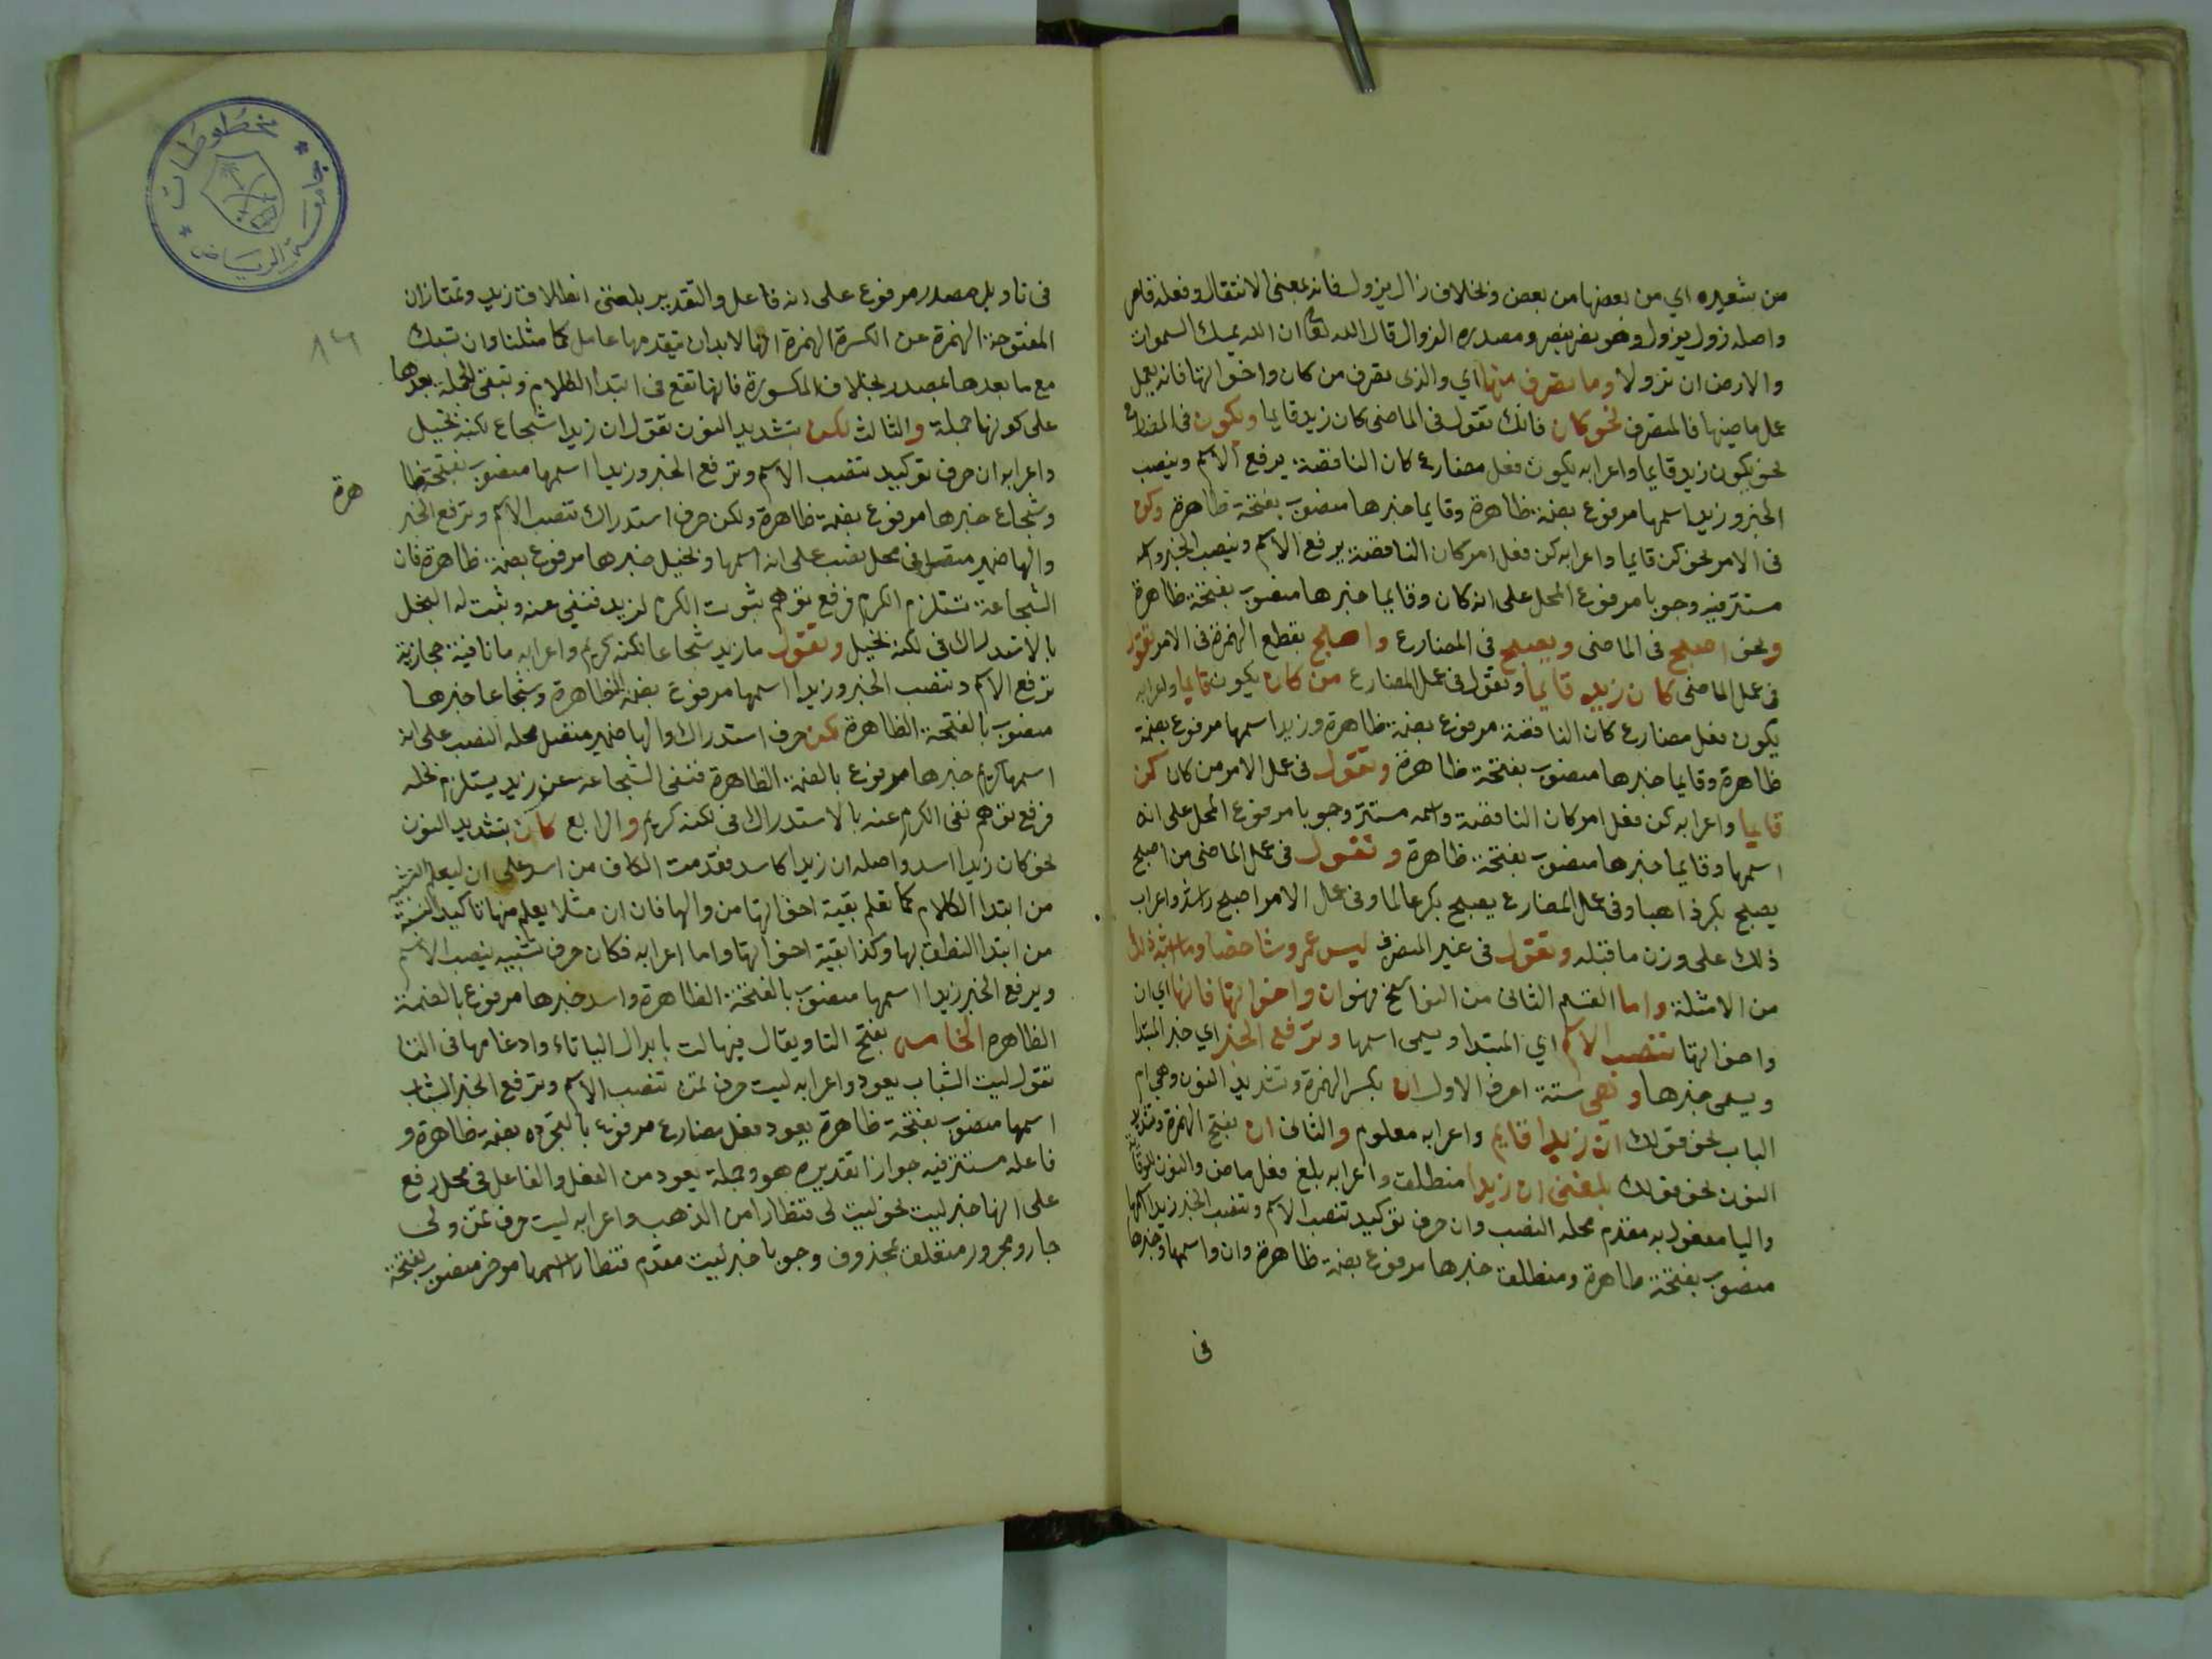 من شعيره اي من بعضها من بعض وبخلاف زال يزول فانه بمعنى الانتقال وفعله قاصر
واصله زول يزول وهو نصر ينصر ومصدره الزوال قال الله تعا ان الله يمسك السموات
والارض ان تزولا وما تصرف منها اي والذى تصرف من كان واخواتها فانه يعمل
عمل ماضيها فالمتصرف نحو كان فانك تقول فى الماضى كان زيد قايما ويكون فى المضارع
نحو يكون زيد قايما واعرابه يكون فعل مضارع كان الناقصة يرفع الاسم وينصب
الخبر وزيد اسمها مرفوع بضمة ظاهرة وقايما خبرها منصوب بفتحة ظاهرة وكن
فى الامر نحو كن قايما واعرابه كن فعل امر كان الناقصة يرفع الاسم وينصب الخبر واسمه
مستتر فيه وجوبا مرفوع المحل على انه كان وقايما خبرها منصوب بفتحة ظاهرة
ونحو اصبح فى الماضى ويصبح فى المضارع واصبح بقطع الهمزة فى الامر تقول
فى عمل الماضى كان زيد قايما وتقول فى عمل المضارع من كان يكون قايما واعرابه
يكون فعل مضارع كان الناقصة مرفوع بضمة ظاهرة وزيد اسمها مرفوع بضمة
ظاهرة وقايما خبرها منصوب بفتحة ظاهرة وتقول فى عمل الامر من كان كن
قايما واعرابه كن فعل امر كان الناقصة واسمه مستتر وجوبا مرفوع المحل على انه
اسمها وقايما خبرها منصوب بفتحة ظاهرة وتقول فى عمل الماضى من اصبح
يصبح بكر ذاهبا وفى عمل المضارع يصبح بكر عالما وفى عمل الامر اصبح واعراب
ذلك على وزن ما قبله وتقول فى غير المتصرف ليس عمرو شاخصا وما اشبه ذلك
من الامثلة واما القسم الثانى من النواسخ فهو ان واخواتها فانها اي ان
واخواتها تنصب الاسم اي المبتدا ويسمى اسمها وترفع الخبر اي خبر المبتدا
ويسمى خبرها وهي ستة احرف الاول ان بكسر الهمزة وتشديد النون وهي ام
الباب نحو قولك ان زيدا قايم واعرابه معلوم والثانى ان بفتح الهمزة وتشديد
النون نحو قولك بلغنى ان زيدا منطلق واعرابه بلغ فعل ماض والنون للوقاية
واليا مفعول به مقدم محله النصب وان حرف توكيد تنصب الاسم وتنصب الخبر زيدا اسمها
منصوب بفتحة ظاهرة ومنطلق خبرها مرفوع بضمة ظاهرة وان واسمها وخبرها
فى
مخطوطات
جامعة الرياض
فى تاويل مصدر مرفوع على انه فاعل والتقدير بلغنى انطلاق زيد وتمتاز ان
المفتوحة الهمزة عن الكسرة الهمزة انها لابد ان يتقدمها عامل كما مثلنا وان تسبك
مع ما بعدها بمصدر بخلاف المكسورة فانها تقع فى ابتدا الكلام وتبقى الجملة بعدها
على كونها جملة والثالث لكن بتشديد النون تقول ان زيدا شجاع لكنه بخيل
واعرابه ان حرف توكيد تنصب الاسم وترفع الخبر وزيدا اسمها منصوب بفتحة ظا
هرة
وشجاع خبرها مرفوع بضمة ظاهرة ولكن حرف استدراك تنصب الاسم وترفع الخبر
والها ضمير متصل فى محل نصب على انه اسمها وبخيل خبرها مرفوع بضمة ظاهرة فان
الشجاعة تستلزم الكرم فرفع توهم ثبوت الكرم لزيد فنفي عنه وثبت له البخل
بالاستدراك فى لكنه بخيل وتقول ما زيد شجاعا لكنه كريم واعرابه ما نافية حجازية
ترفع الاسم وتنصب الخبر وزيدا اسمها مرفوع بضمة الظاهرة وشجاعا خبرها
منصوب بالفتحة الظاهرة لكن حرف استدراك والها ضمير متصل محله النصب على انه
اسمها كريم خبرها مرفوع بالضمة الظاهرة فنفى الشجاعة عن زيد يستلزم بخله
فرفع توهم نفى الكرم عنه بالاستدراك فى لكنه كريم والرابع كان بتشديد النون
نحو كان زيدا اسد واصله ان زيدا كاسد فقدمت الكاف من اسد على ان ليعلم التشبيه
من ابتدا الكلام كما تعلم بقية اخواتها من والها فان ان مثلا يعلم منها تاكيد النسبة
من ابتدا النطق بها وكذا بقية اخواتها واما اعرابه فكان حرف تشبيه ينصب الاسم
ويرفع الخبر زيدا اسمها منصوب بالفتحة الظاهرة واسد خبرها مرفوع بالضمة
الظاهره الخامس بفتح التا ويقال فيها لت بابدال اليا تاء وادغامها فى التا
تقول ليت الشباب يعود واعرابه ليت حرف تمن تنصب الاسم وترفع الخبر الشباب
اسمها منصوب بفتحة ظاهرة يعود فعل مضارع مرفوع بالتجرده بضمة ظاهرة و
فاعله مستتر فيه جوازا تقديره هو وجملة يعود من الفعل والفاعل فى محل رفع
على انها خبر ليت نحو ليت لى قنطارا من الذهب واعرابه ليت حرف تمن ولى
جار ومجرور متعلق بمحذوف وجوبا خبر ليت مقدم قنطارا اسمها موخر منصوب بفتحة